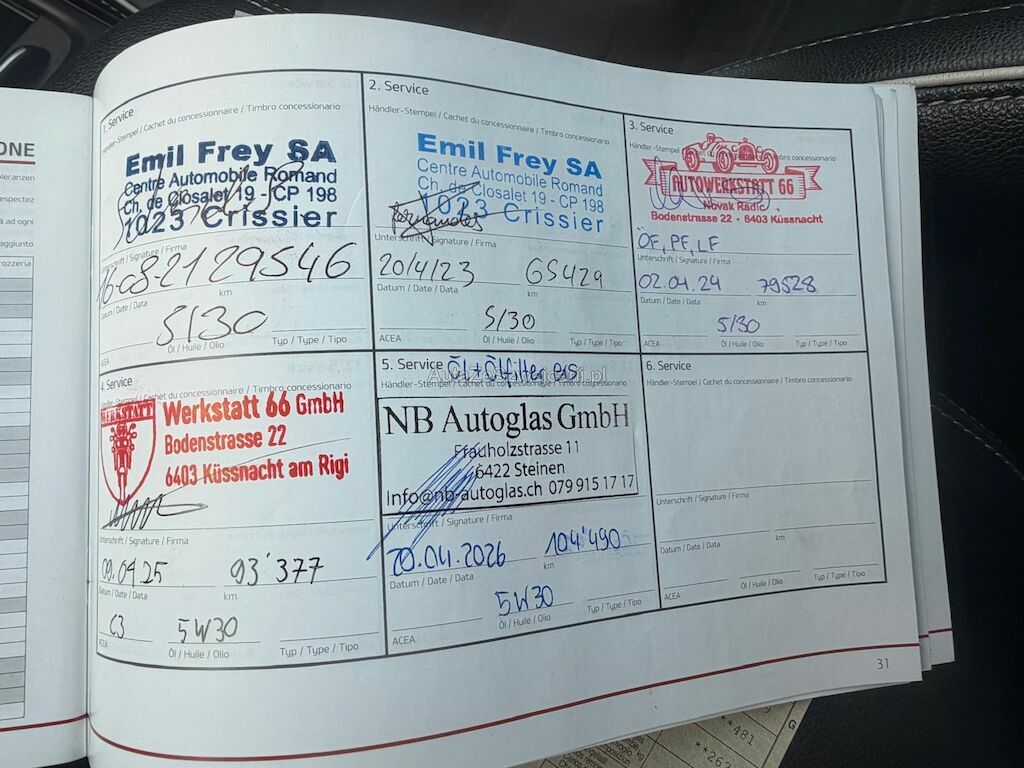 ONE
oleranzen
espectez
à ad ogni
aggiunto
rozzeria
1. Service
Händler-Stempel / Cachet du concessionnaire / Timbro concessionario
Emil Frey SA
Centre Automobile Romand
Ch. de Closalet 19 - CP 198
1023 Crissier
Unterschrift / Signature / Firma
16-08-21 29546
Datum / Date / Data
km
5/30
ACEA
Öl / Huile / Olio
Typ / Type / Tipo
2. Service
Händler-Stempel / Cachet du concessionnaire / Timbro concessionario
Emil Frey SA
Centre Automobile Romand
Ch. de Closalet 19 - CP 198
1023 Crissier
Unterschrift / Signature / Firma
20/4/23 65429
Datum / Date / Data
km
5/30
ACEA
Öl / Huile / Olio
Typ / Type / Tipo
3. Service
Händler-Stempel
timbro concessionario
AUTOWERKSTATT 66
Novak Radic
Bodenstrasse 22 - 6403 Küssnacht
ÖF, PF, LF
Unterschrift / Signature / Firma
02.04.24 79528
Datum / Date / Data
km
5/30
ACEA
Öl / Huile / Olio
Typ / Type / Tipo
4. Service
Händler-Stempel / Cachet du concessionnaire / Timbro concessionario
WERKSTATT
Werkstatt 66 GmbH
Bodenstrasse 22
6403 Küssnacht am Rigi
Unterschrift / Signature / Firma
09.04.25 93'377
Datum / Date / Data
km
C3 5W30
ACEA
Öl / Huile / Olio
Typ / Type / Tipo
5. Service Öl + Ölfilter ers
Händler-Stempel / Cachet du concessionnaire / Timbro concessionario
NB Autoglas GmbH
Frauholzstrasse 11
6422 Steinen
Info@nb-autoglas.ch 079 915 17 17
Unterschrift / Signature / Firma
20.04.2026 104'490
Datum / Date / Data
km
5W30
ACEA
Öl / Huile / Olio
Typ / Type / Tipo
6. Service
Händler-Stempel / Cachet du concessionnaire / Timbro concessionario
Unterschrift / Signature / Firma
Datum / Date / Data
km
ACEA
Öl / Huile / Olio
Typ / Type / Tipo
31
**481
G